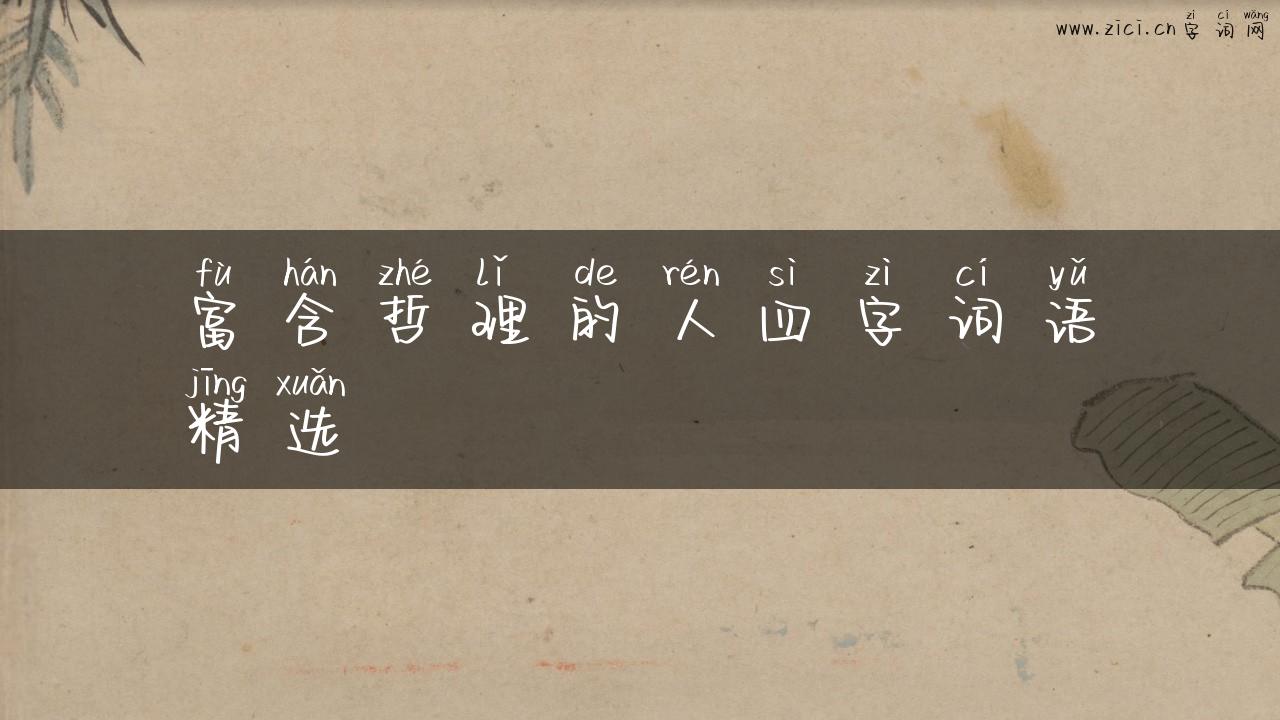 zì cí wǎng
www.zici.cn 字词网
fù hán zhé lǐ de rén sì zì cí yǔ
富含哲理的人四字词语
jīng xuǎn
精选